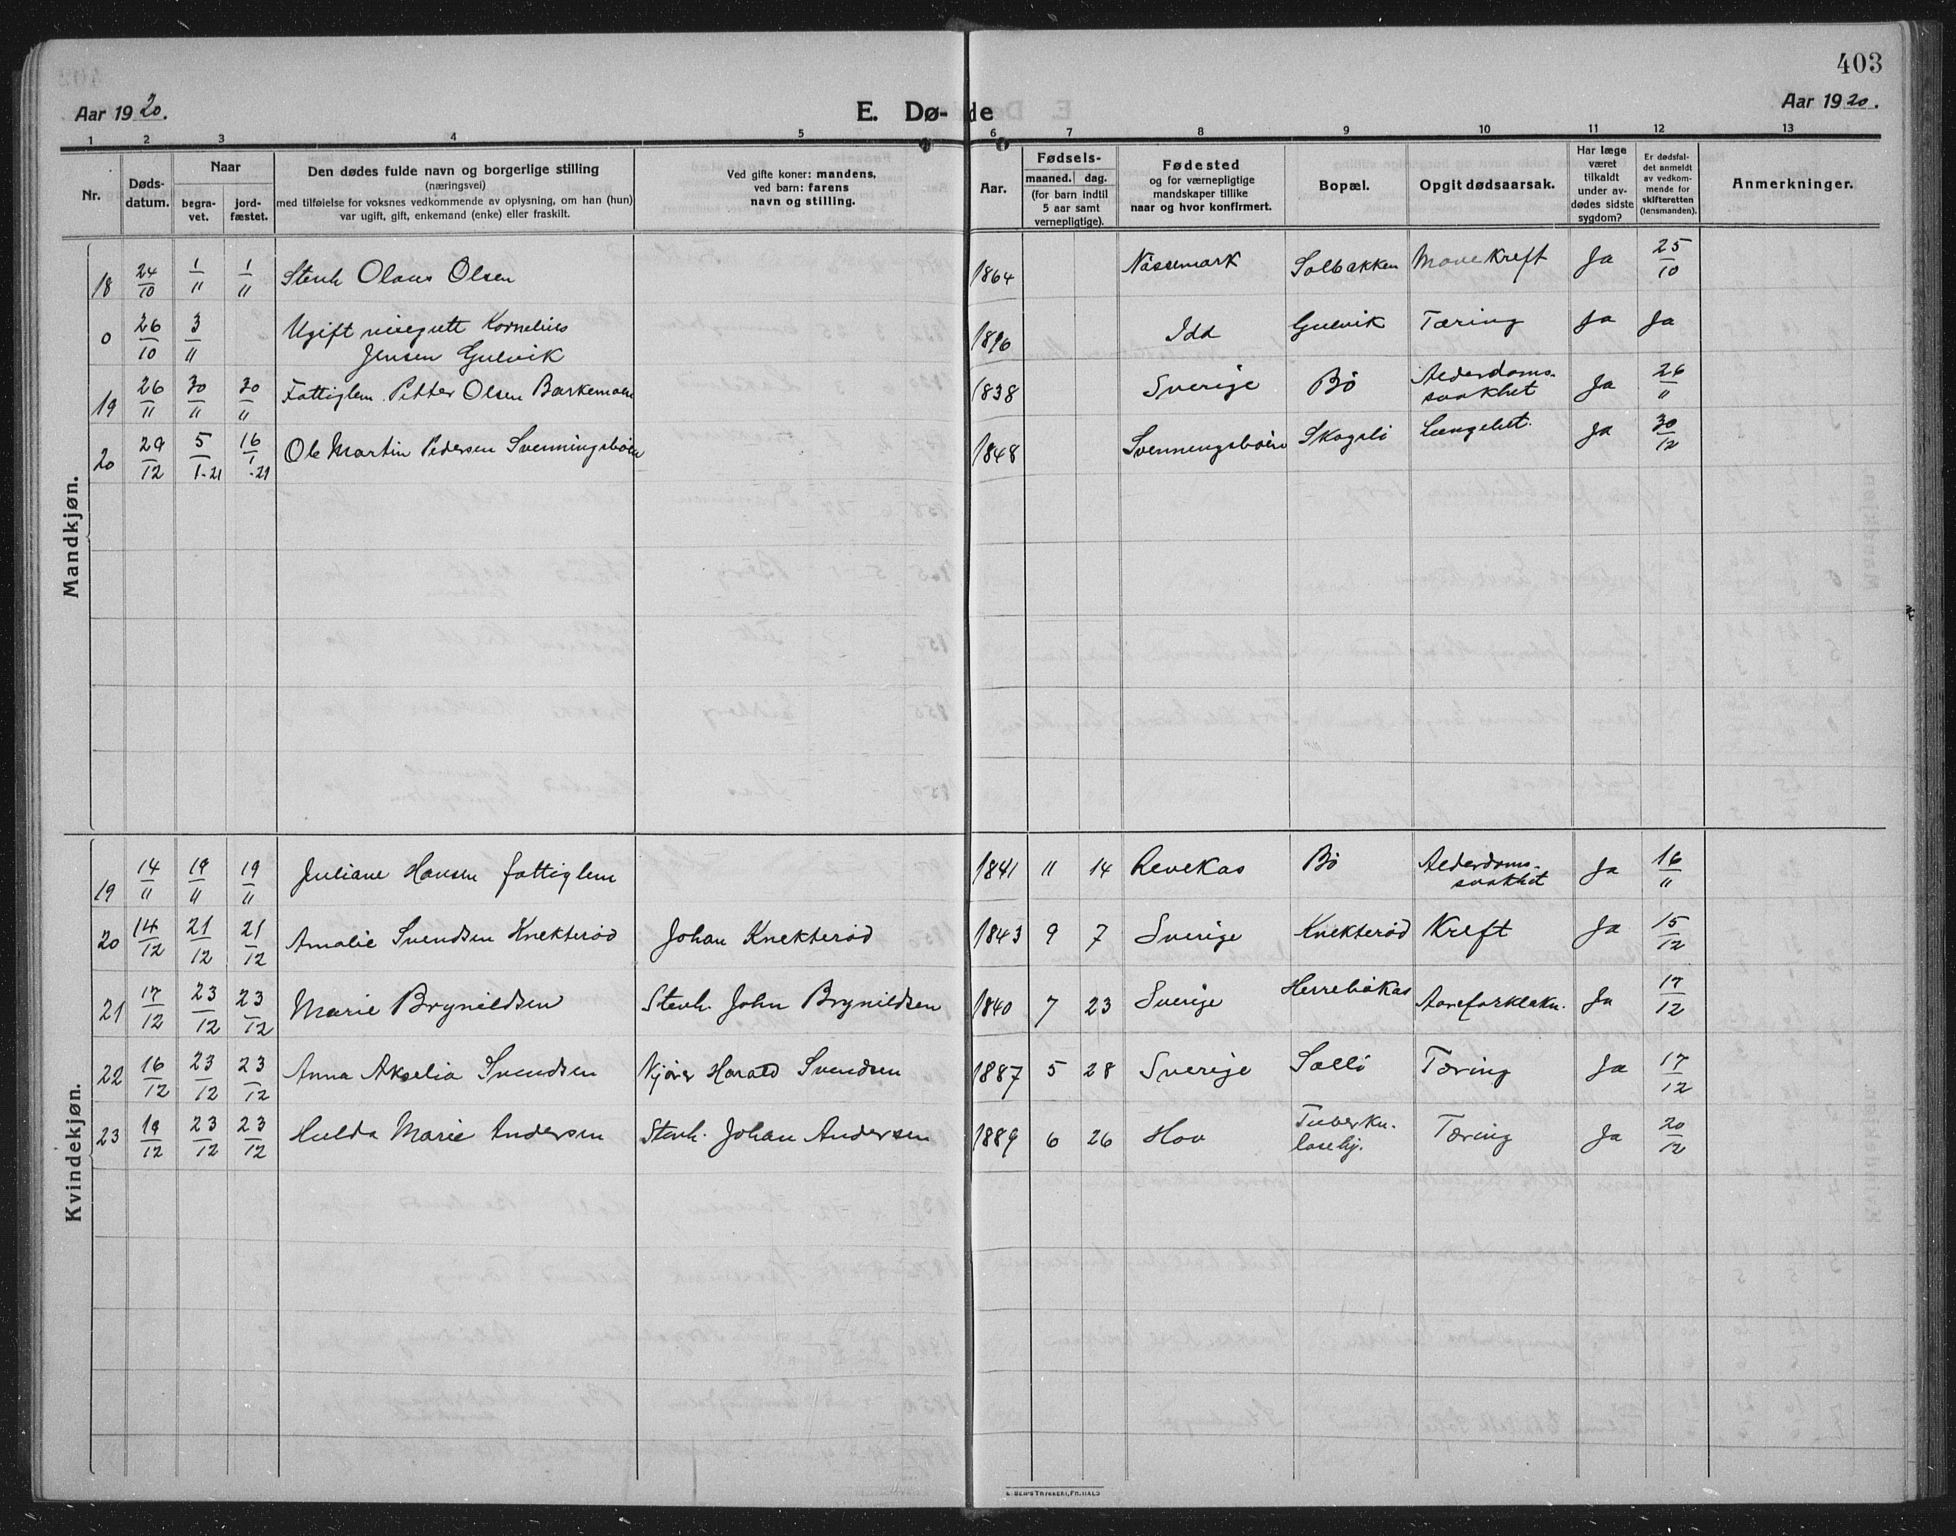 403
Aar 1920.
E. Dø-de
Aar 1920.
1 2 3 4 5 6 7 8 9 10 11 12 13
Nr.
Døds-
datum.
Naar
begra-
vet.
jord-
fæstet.
Den dødes fulde navn og borgerlige stilling
(næringsvei)
med tilføielse for voksnes vedkommende av oplysning, om han (hun)
var ugift, gift, enkemand (enke) eller fraskilt.
Ved gifte koner: mandens,
ved barn: farens
navn og stilling.
Aar.
Fødsels-
maaned. dag.
(for barn indtil
5 aar samt
vernepligtige).
Fødested
og for værnepligtige
mandskaper tillike
naar og hvor konfirmert.
Bopæl.
Opgit dødsaarsak.
Har læge
været
tilkaldt
under av-
dødes sidste
sygdom?
Er dødsfal-
det anmeldt
av vedkom-
mende for
skifteretten
(lensmanden).
Anmerkninger.
Mandkjøn.
18 24/10 1/11 1/11 Stenh Olaus Olsen 1864 Nässemark Solbakken Mavekreft Ja 25/10
0 26/10 3/11 Ugift Kornelius
Jensen Gulvik 1896 Idd Gulvik Tæring Ja Ja
19 26/11 30/11 30/11 Fattiglem. Petter Olsen Barkemoen 1838 Sverige Bø Alderdoms-
svakhet Ja 26/11
20 29/12 5/1-21 16/1-21 Ole Martin Pedersen Svenningsbøen 1848 Svenningsbøen Skogslö Ja 30/12
Kvindekjøn.
19 14/11 19/11 19/11 Juliane Hansen fattiglem 1841 11 14 Revekas Bø Alderdoms-
svakhet Ja 16/11
20 14/12 21/12 21/12 Amalie Svendsen Knekterød Johan Knekterød 1843 9 7 Sverige Knekterød Kreft Ja 15/12
21 17/12 23/12 23/12 Marie Brynildsen Stenh. John Brynildsen 1840 7 23 Sverige Herrebökas Aareforkalkn. Ja 17/12
22 16/12 23/12 23/12 Anna Akselia Svendsen Kjører Harald Svendsen 1887 5 28 Sverige Sollö Tæring Ja 17/12
23 19/12 23/12 23/12 Hulda Marie Andersen Stenh. Johan Andersen 1889 6 26 Hov Tuberku-
losehj. Tæring Ja 20/12